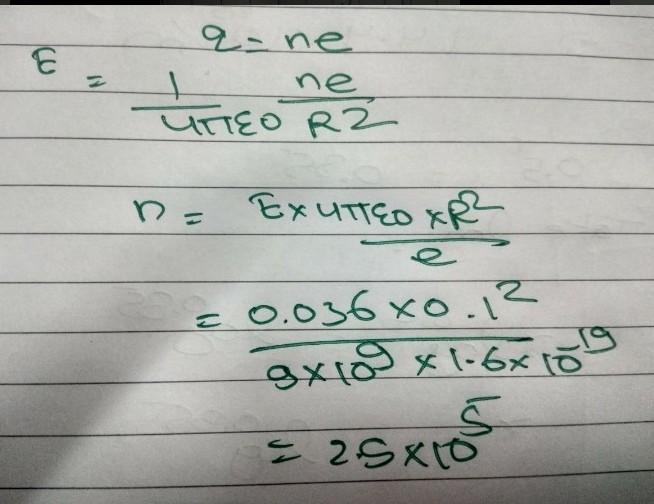 q = ne
E = 1/4πε0 ne/R2
n = E×4πε0×R²/e
= 0.036×0.1²/9×10⁹×1.6×10⁻¹⁹
= 2.5×10⁵